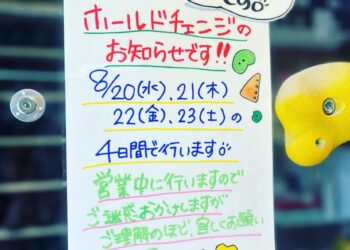 ホールドチェンジの
お知らせです!!
8/20(水)、21(木)
22(金)、23(土)の
4日間で行います
営業中に行いますので
ご迷惑おかけしますが
ご理解のほど、宜しくお願い